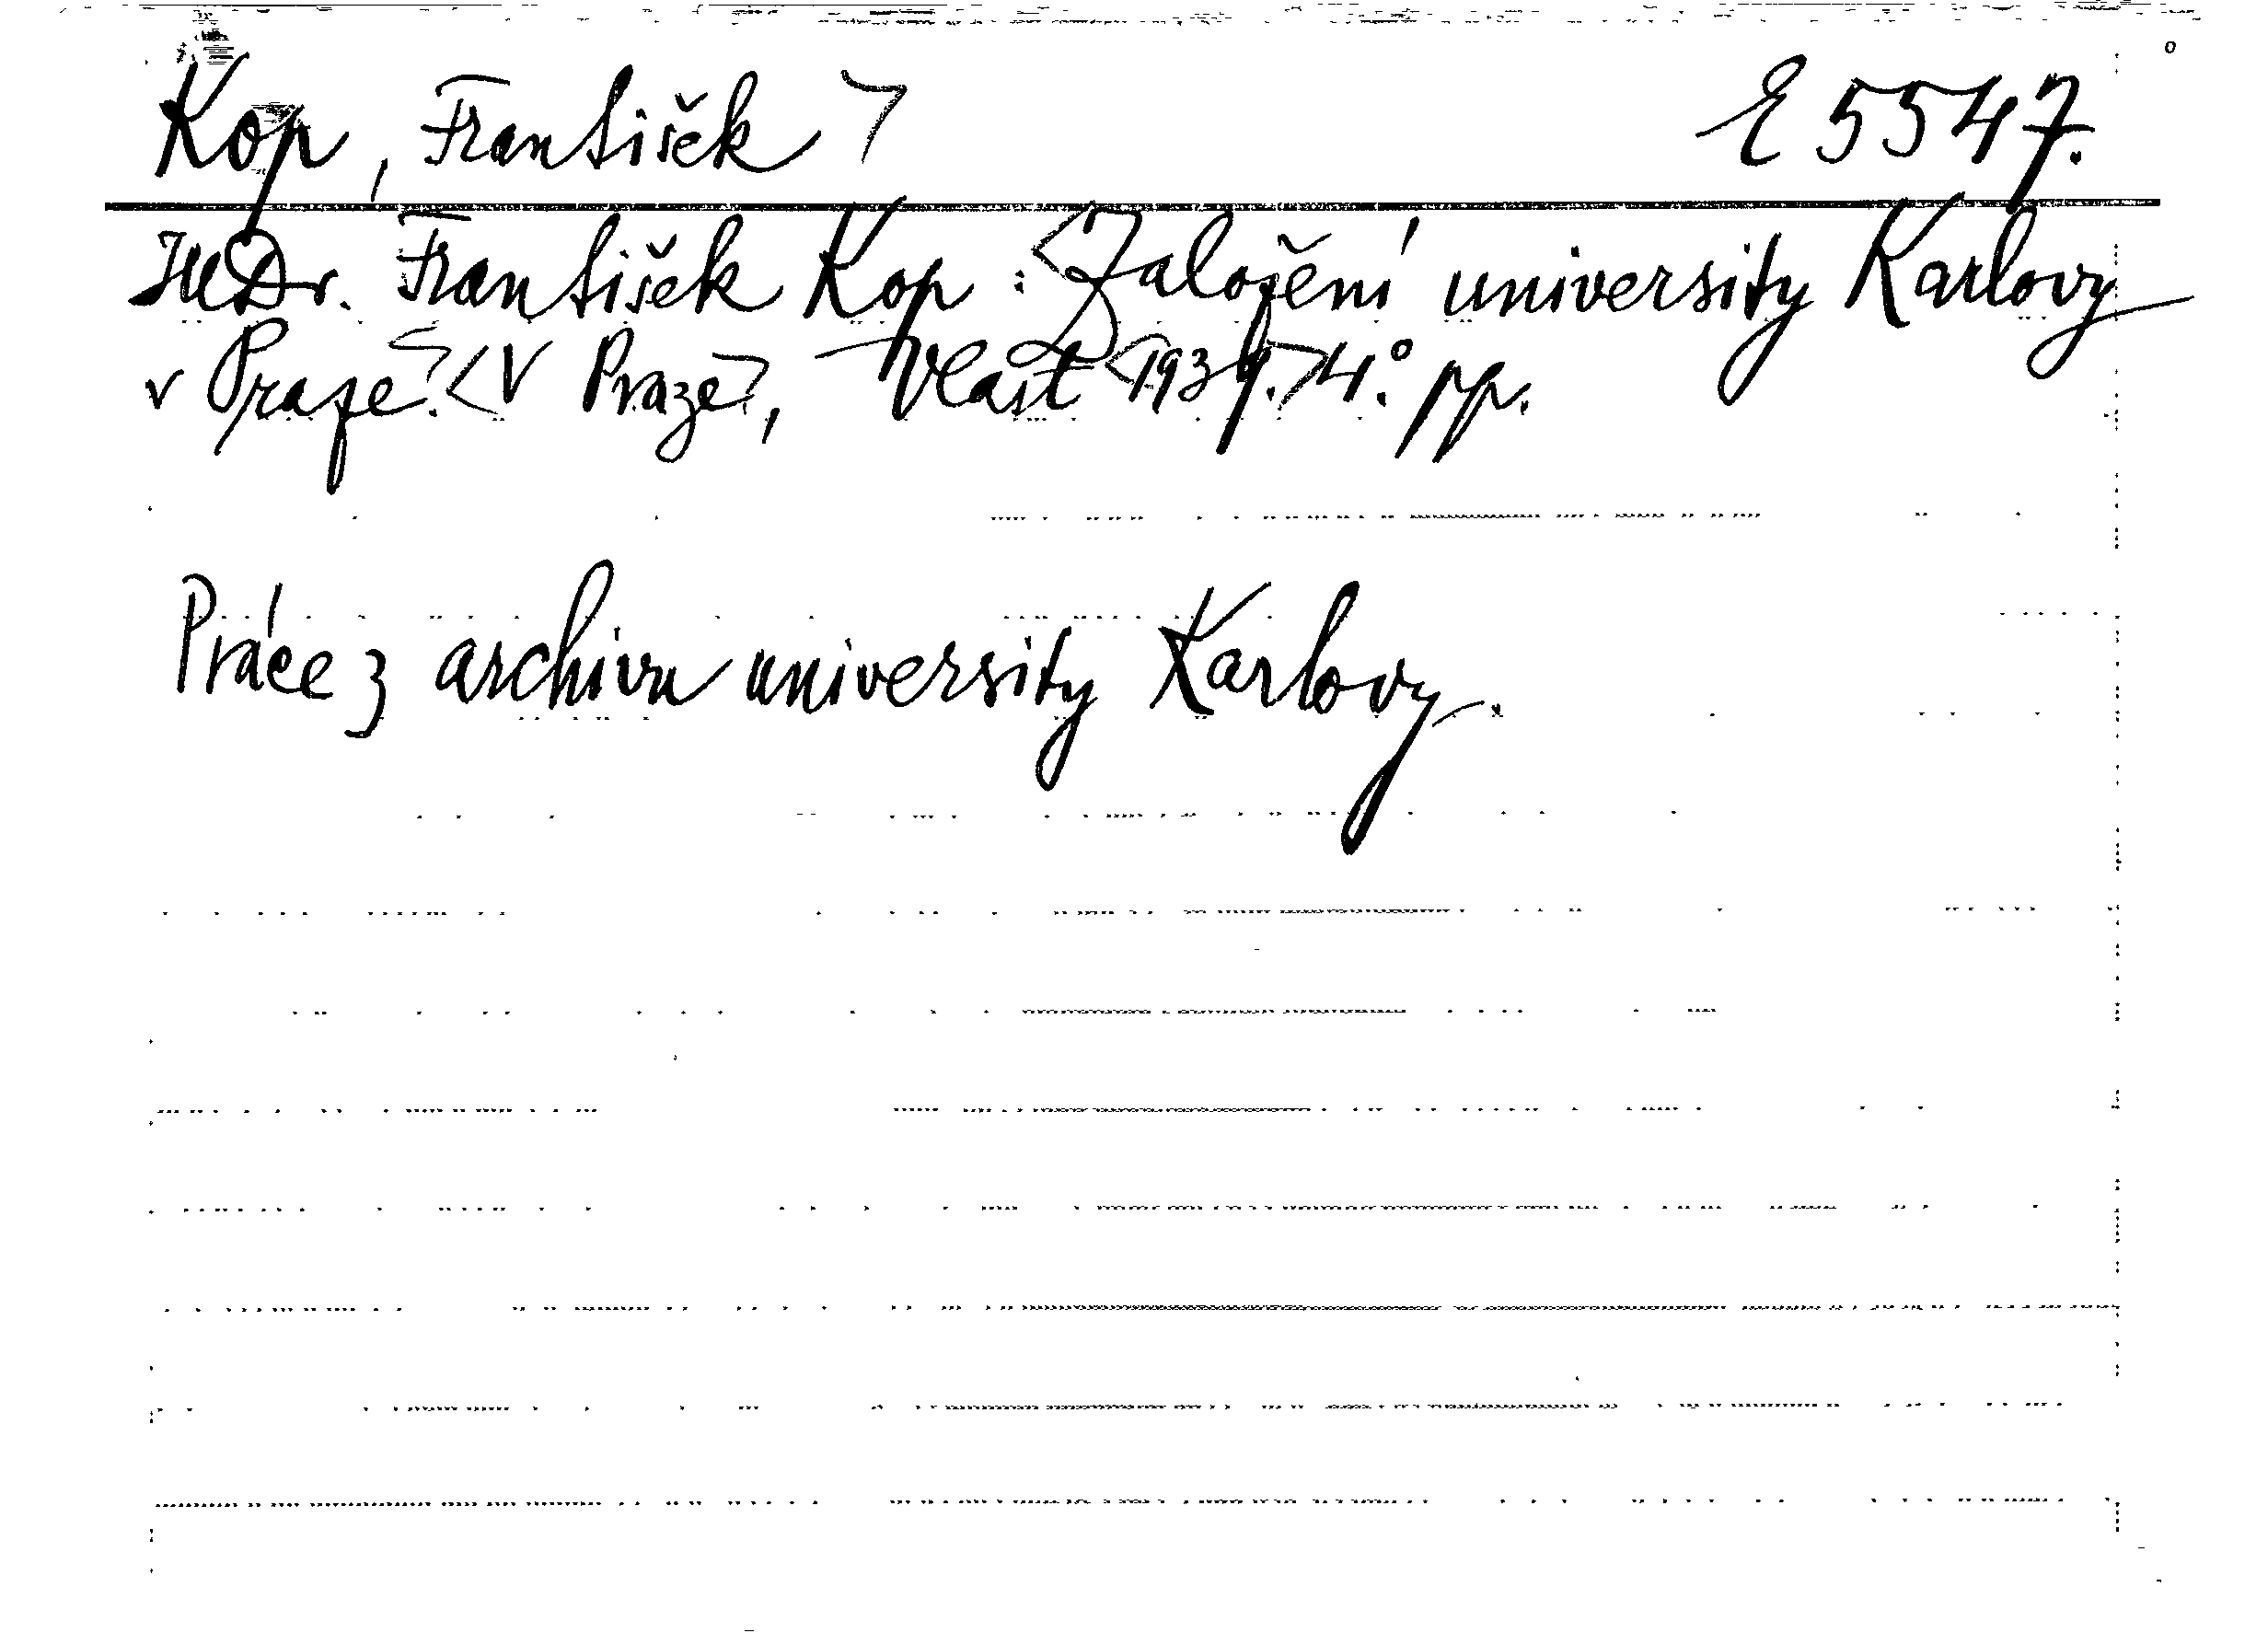 Kop, František > E 5547.
JUDr. František Kop : <Založení university Karlovy
v Praze.> <V Praze>, Vlast <1939.> 4.° pp.
Práce z archivu university Karlovy.